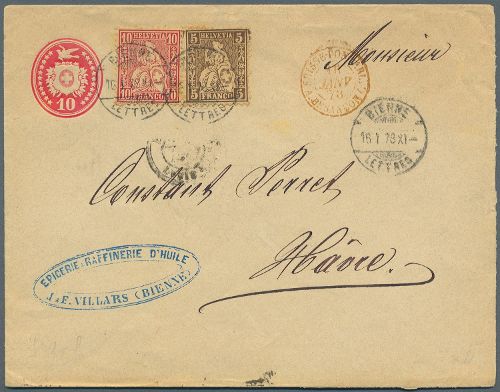 HELVETIA HELVETIA
10 10 5 5
10 FRANCO 10 5 FRANCO 5
10
BIENNE
LETTRES
Monsieur
BIENNE
16.1.78.XI
LETTRES
Constant Perret
Hâvre.
EPICERIE & RAFFINERIE D'HUILE
A.F. VILLARS (BIENNE)